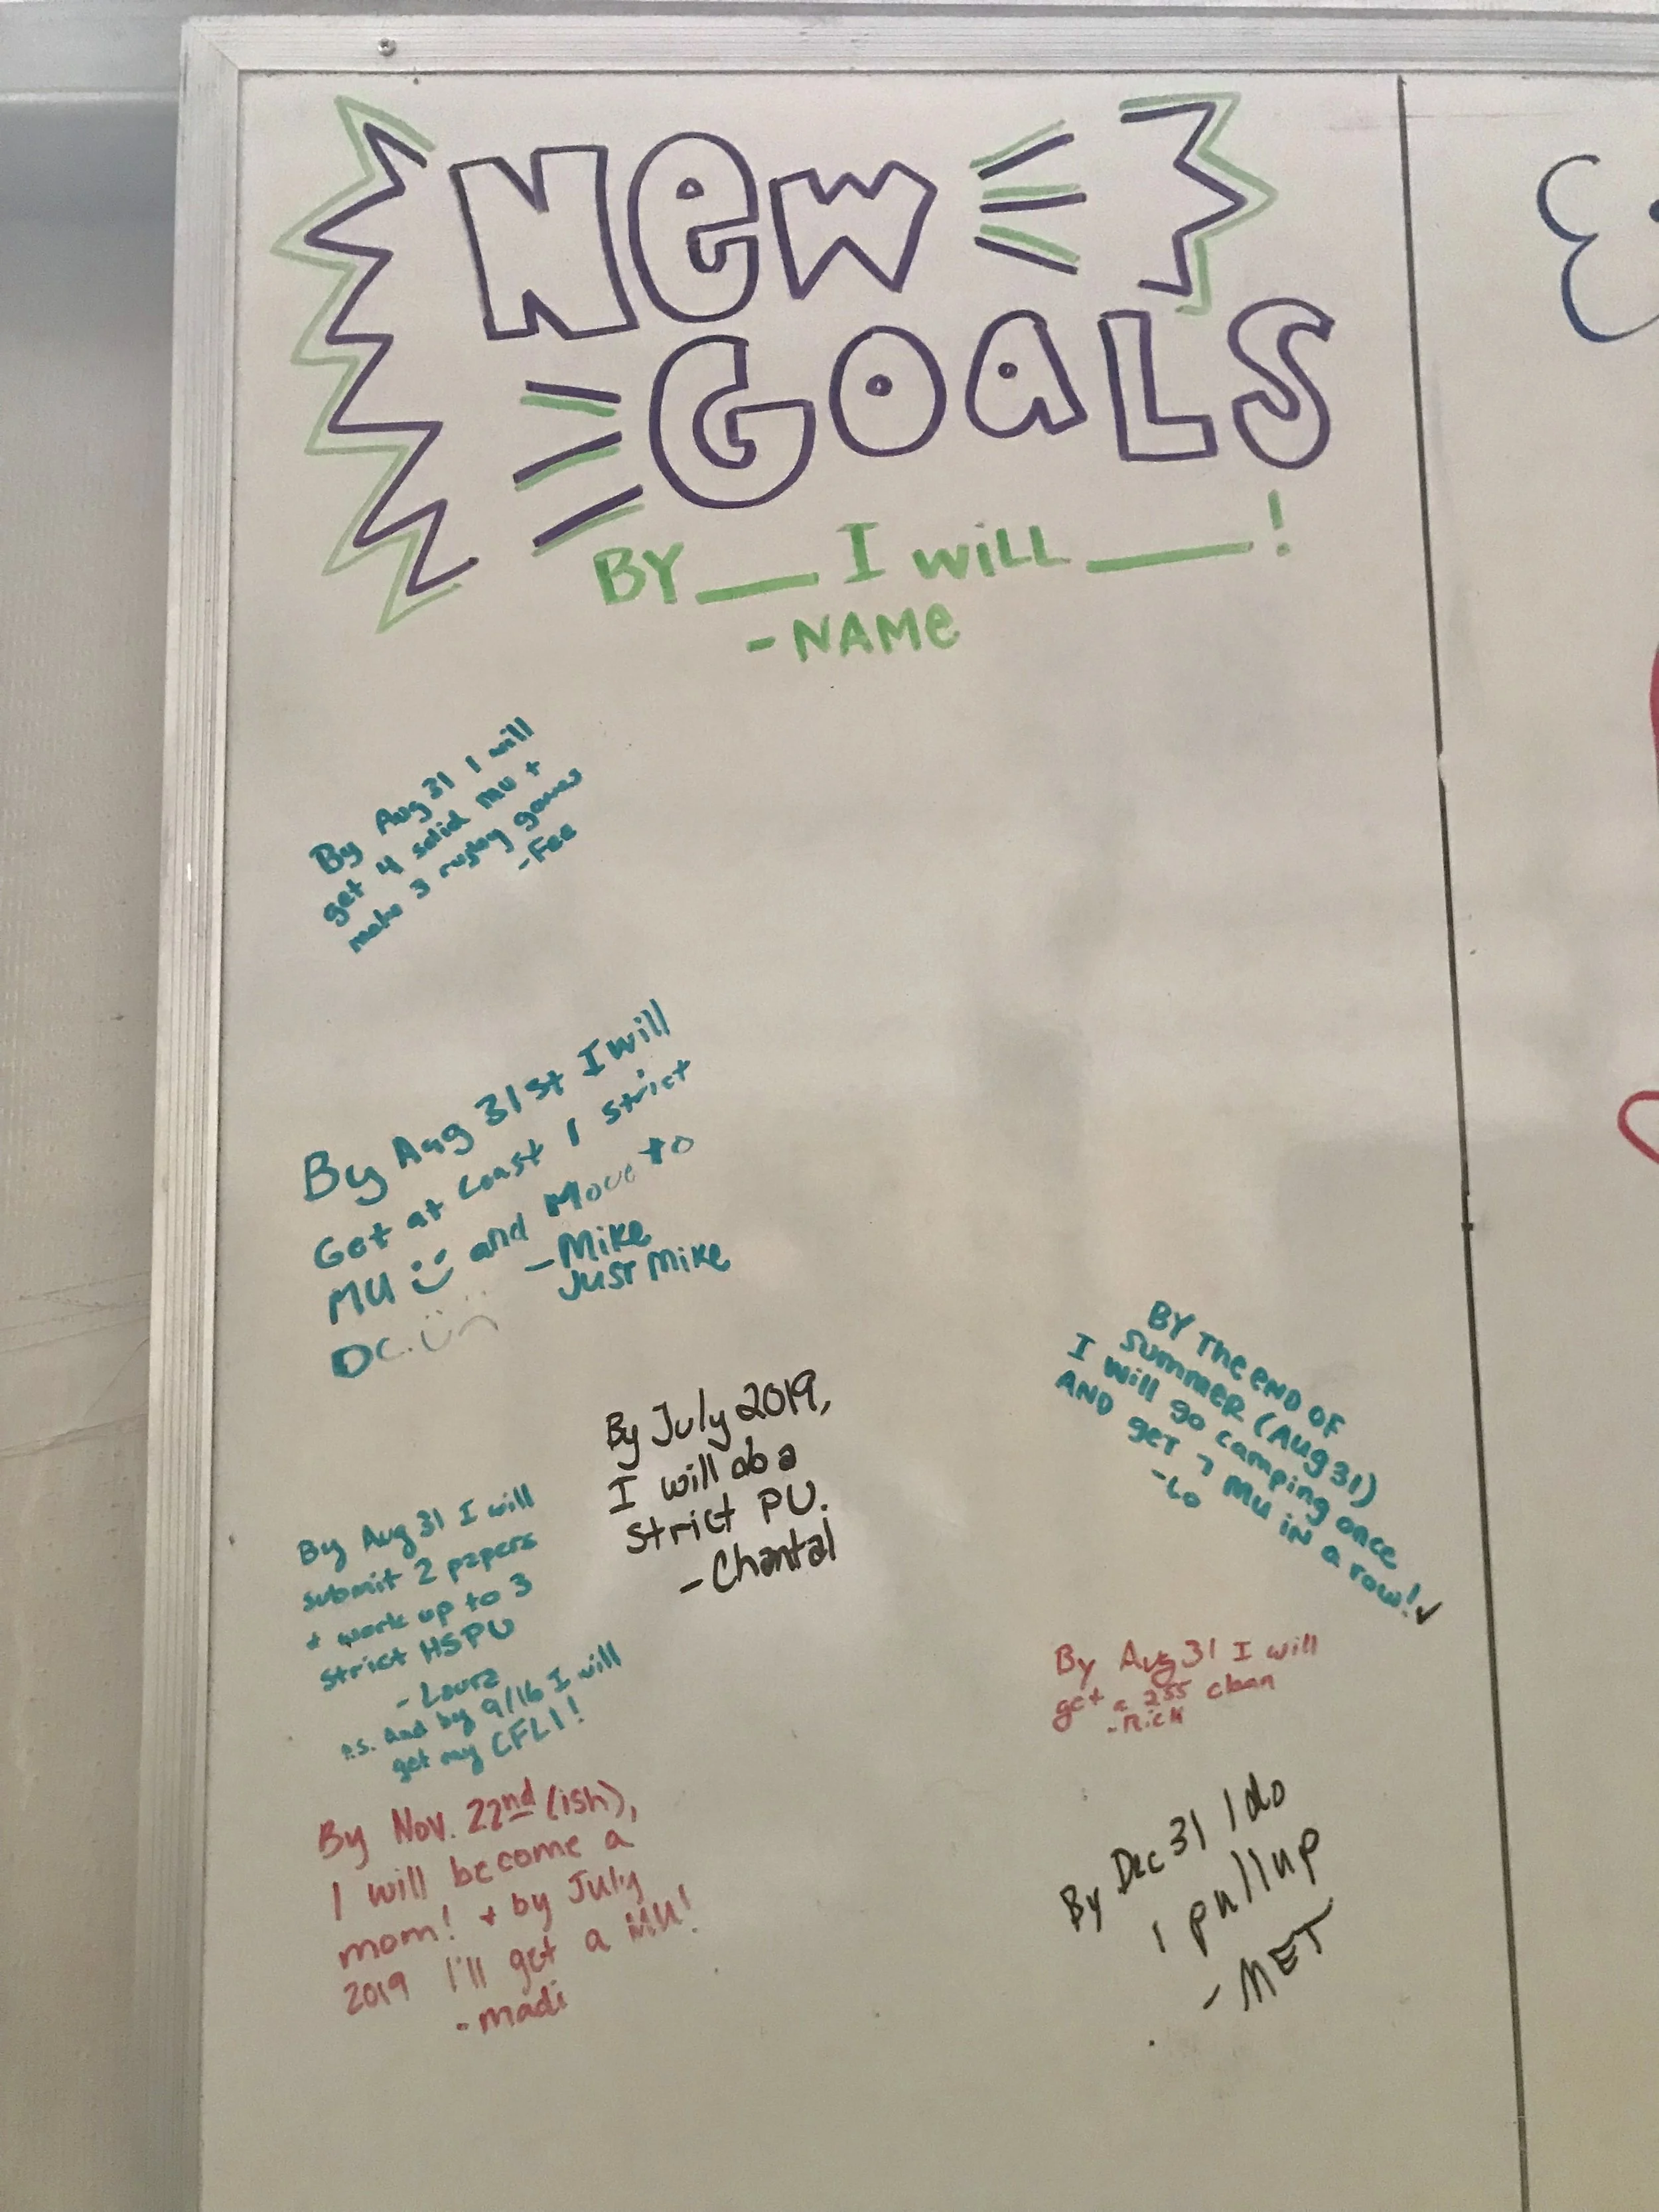 NEW
GOALS
BY ___ I WILL ____!
- NAME
By Aug 31 I will
get 4 solid MU +
make 3 rugby games
- Fee
By Aug 31st I will
Get at Least 1 strict
MU and Move to
DC.
- Mike
Just Mike
By July 2019,
I will do a
strict PU.
- Chantal
BY The END OF
SUMMER (Aug 31)
I will go camping once
AND get 7 MU iN a row! ✓
- Lo
By Aug 31 I will
submit 2 papers
+ work up to 3
strict HSPU
- Laura
P.S. And by 9/16 I will
get my CFL1!
By Aug 31 I will
get a 255 clean
- Rick
By Nov. 22nd (ish),
I will become a
mom! + by July
2019 I'll get a MU!
- madi
By Dec 31 I do
1 pullup
- MET